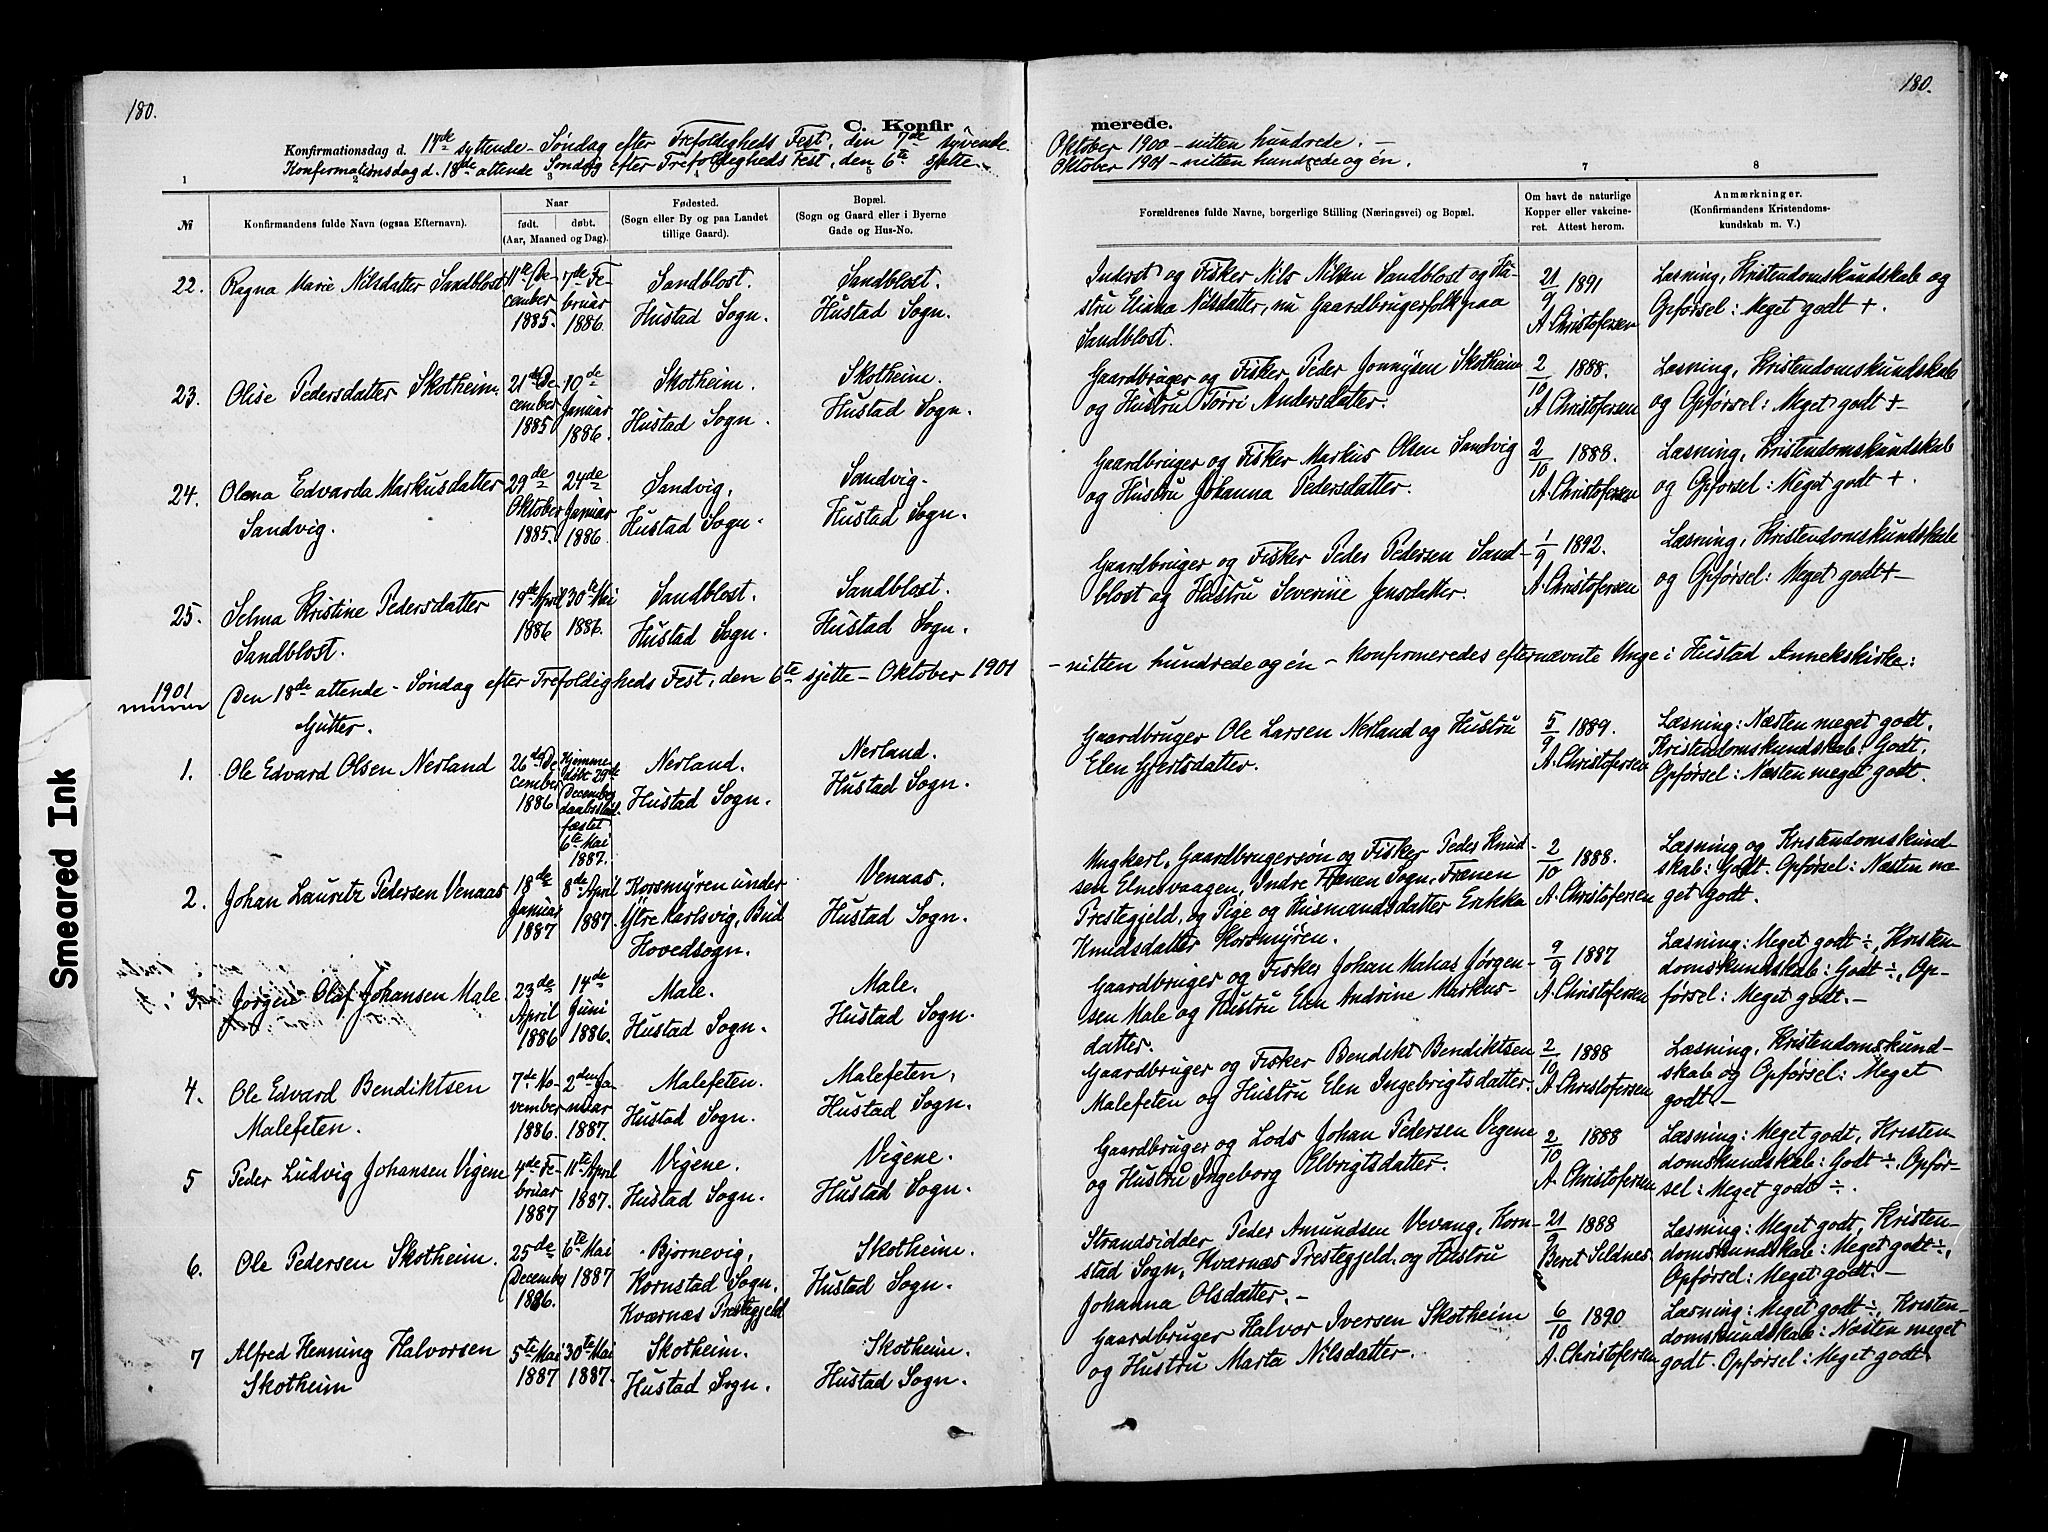 180.
180.
C. Konfirmerede.
Konfirmationsdag d. 17de syttende - Søndag efter Trefoldigheds Fest, den 7de syvende Oktober 1900 - nitten hundrede. -
Konfirmationsdag d. 18de attende Søndag efter Trefoldigheds Fest, den 6te sjette - Oktober 1901 - nitten hundrede og én.
1 2 3 4 5 6 7 8
№
Konfirmandens fulde Navn (ogsaa Efternavn).
Naar
født. døbt.
(Aar, Maaned og Dag).
Fødested.
(Sogn eller By og paa Landet
tillige Gaard).
Bopæl.
(Sogn og Gaard eller i Byerne
Gade og Hus-No.
Forældrenes fulde Navne, borgerlige Stilling (Næringsvei) og Bopæl.
Om havt de naturlige
Kopper eller vakcine-
ret. Attest herom.
Anmærkninger.
(Konfirmandens Kristendoms-
kundskab m. V.)
22. Ragna Marie Nilsdatter Sandblost
11te De-
cember
1885.
7de Fe-
bruar
1886.
Sandblost.
Hustad Sogn.
Sandblost.
Hustad Sogn.
Inderst og Fisker Nils Nilsen Sandblost og Hu-
stru Eliana Nilsdatter, nu Gaardbrugerfolk paa
Sandblost.
21/9 1891
A. Christofersen
Læsning, Kristendomskundskab og
Opførsel: Meget godt +.
23. Olise Pedersdatter Skotheim.
21de De-
cember
1885
10de
Januar
1886.
Skotheim.
Hustad Sogn.
Skotheim.
Hustad Sogn.
Gaardbruger og Fisker Peder Jonnysen Skotheim
og Hustru Torri Andersdatter.
2/10 1888.
A. Christofersen
Læsning, Kristendomskundskab
og Opførsel: Meget godt +-
24. Olena Edvarda Markusdatter
Sandvig.
29de
Oktober
1885.
24de
Januar
1886.
Sandvig,
Hustad Sogn.
Sandvig.
Hustad Sogn.
Gaardbruger og Fisker Markus Olsen Sandvig
og Hustru Johanna Pedersdatter.
2/10 1888.
A. Christofersen
Læsning, Kristendomskundskab
og Opførsel: Meget godt +.
25. Selma Kristine Pedersdatter
Sandblost.
19de April
1886
30te Mai
1886.
Sandblost.
Hustad Sogn.
Sandblost.
Hustad Sogn.
Gaardbruger og Fisker Peder Pedersen Sand-
blost og Hustru Severine Jensdatter.
1/9 1892.
A. Christofersen
Læsning, Kristendomskundskab
og Opførsel: Meget godt +-
1901 Den 18de attende - Søndag efter Trefoldigheds Fest, den 6te sjette - Oktober 1901 - nitten hundrede og én - konfirmeredes efternævnte Unge i Hustad Annekskirke:
Gutter.
1. Ole Edvard Olsen Nerland
26de De
cember
1886
Hjemme
døbt 29de
December
daabsstad-
fæstet
6te Mai
1887.
Nerland.
Hustad Sogn.
Nerland.
Hustad Sogn.
Gaardbruger Ole Larsen Nerland og Hustru
Elen Gjertsdatter.
5/9 1889.
A. Christofersen
Læsning: Næsten meget godt.
Kristendomskundskab: Godt.
Opførsel: Næsten meget godt.
2. Johan Lauritz Pedersen Venaas
18de
Januar
1887
8de April
1887.
Korsmyren under
Ytre Karlsvig, Bud
Hovedsogn.
Venaas.
Hustad Sogn.
Ungkarl, Gaardbrugersøn og Fisker Peder Knud-
sen Elnesvaagen, Indre Frænen Sogn, Frænen
Prestegjeld, og Pige og Husmandsdatter Erikka
Knudsdatter Korsmyren.
2/10 1888.
A. Christofersen
Læsning og Kristendomskund-
skab: Godt. Opførsel: Næsten me-
get godt.
3. Jørgen Olaf Johansen Male
23de
April
1886
14de
Juni
1886.
Male.
Hustad Sogn.
Male.
Hustad Sogn.
Gaardbruger og Fisker Johan Matias Jørgen-
sen Male og Hustru Elen Andrine Markus-
datter.
9/9 1887
A. Christofersen
Læsning: Meget godt ÷, Kristen-
domskundskab: Godt ÷, Op-
førsel: Meget godt. -
4. Ole Edvard Bendiktsen
Malefeten.
7de No-
vember
1886.
2den Ja-
nuar
1887.
Malefeten.
Hustad Sogn.
Malefeten,
Hustad Sogn.
Gaardbruger og Fisker Bendikt Bendiktsen
Malefeten og Hustru Elen Ingebrigtsdatter.
2/10 1888
A. Christofersen
Læsning, Kristendomskund-
skab og Opførsel: Meget
godt. -
5 Peder Ludvig Johansen Vigene
4de Fe-
bruar
1887
11te April
1887.
Vigene.
Hustad Sogn.
Vigene.
Hustad Sogn.
Gaardbruger og Lods Johan Pedersen Vigene
og Hustru Ingeborg Elbrigtsdatter.
2/10 1888
A. Christofersen
Læsning: Meget godt, Kristen-
domskundskab: Godt ÷, Opfør-
sel: Meget godt ÷.
6. Ole Pedersen Skotheim.
25de
December
1886.
6te Mai
1887
Bjørnevig,
Kornstad Sogn,
Kværnæs Prestegjeld
Skotheim.
Hustad Sogn.
Strandsidder Peder Amundsen Vevang, Korn-
stad Sogn, Kværnæs Prestegjeld, og Hustru
Johanna Olsdatter. -
21/9 1888
Beret Seldnes
Læsning: Meget godt, Kristen-
domskundskab: Meget godt ÷,
Opførsel: Meget godt. -
7 Alfred Henning Halvorsen
Skotheim
5te Mai
1887
30te Mai
1887.
Skotheim.
Hustad Sogn.
Skotheim.
Hustad Sogn.
Gaardbruger Halvor Iversen Skotheim
og Hustru Marta Nilsdatter.
6/10 1890
A. Christofersen
Læsning: Meget godt ÷, Kristen-
domskundskab: Næsten meget
godt Opførsel: Meget godt.
Smeared Ink